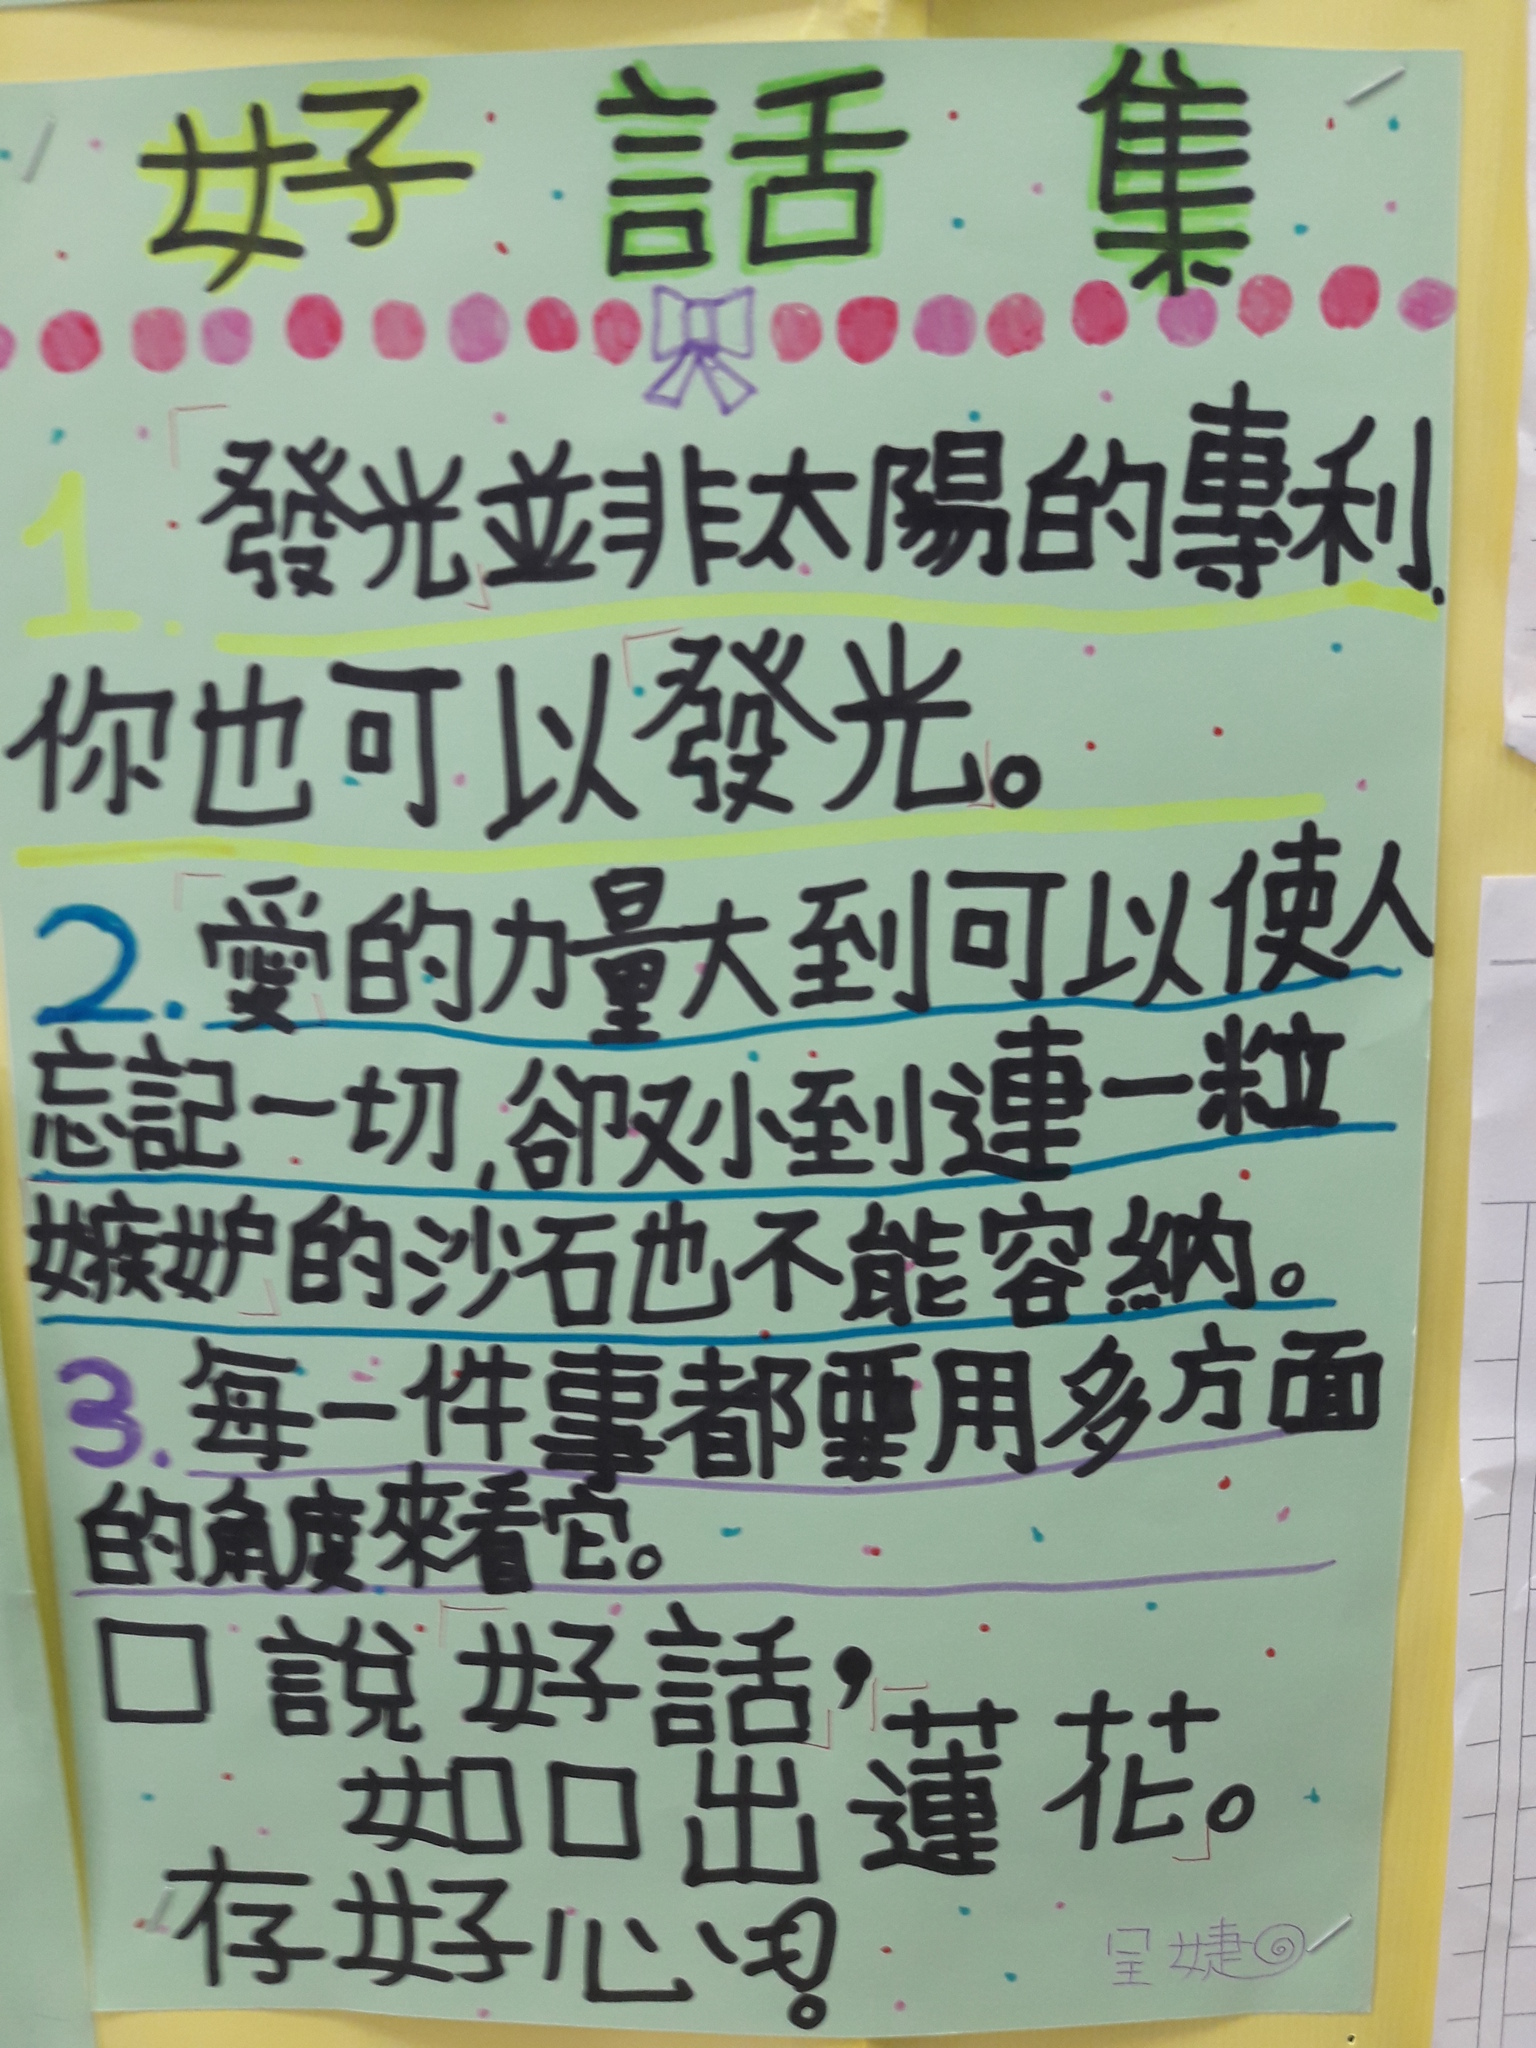 好話集
1.「發光」並非太陽的專利.
你也可以「發光」。
2.「愛」的力量大到可以使人
忘記一切,卻又小到連一粒
嫉妒」的沙石也不能容納。
3.每一件事都要用多方面
的角度來看它。
口說「好話」,「蓮花」。
如口出
存好心
呈婕